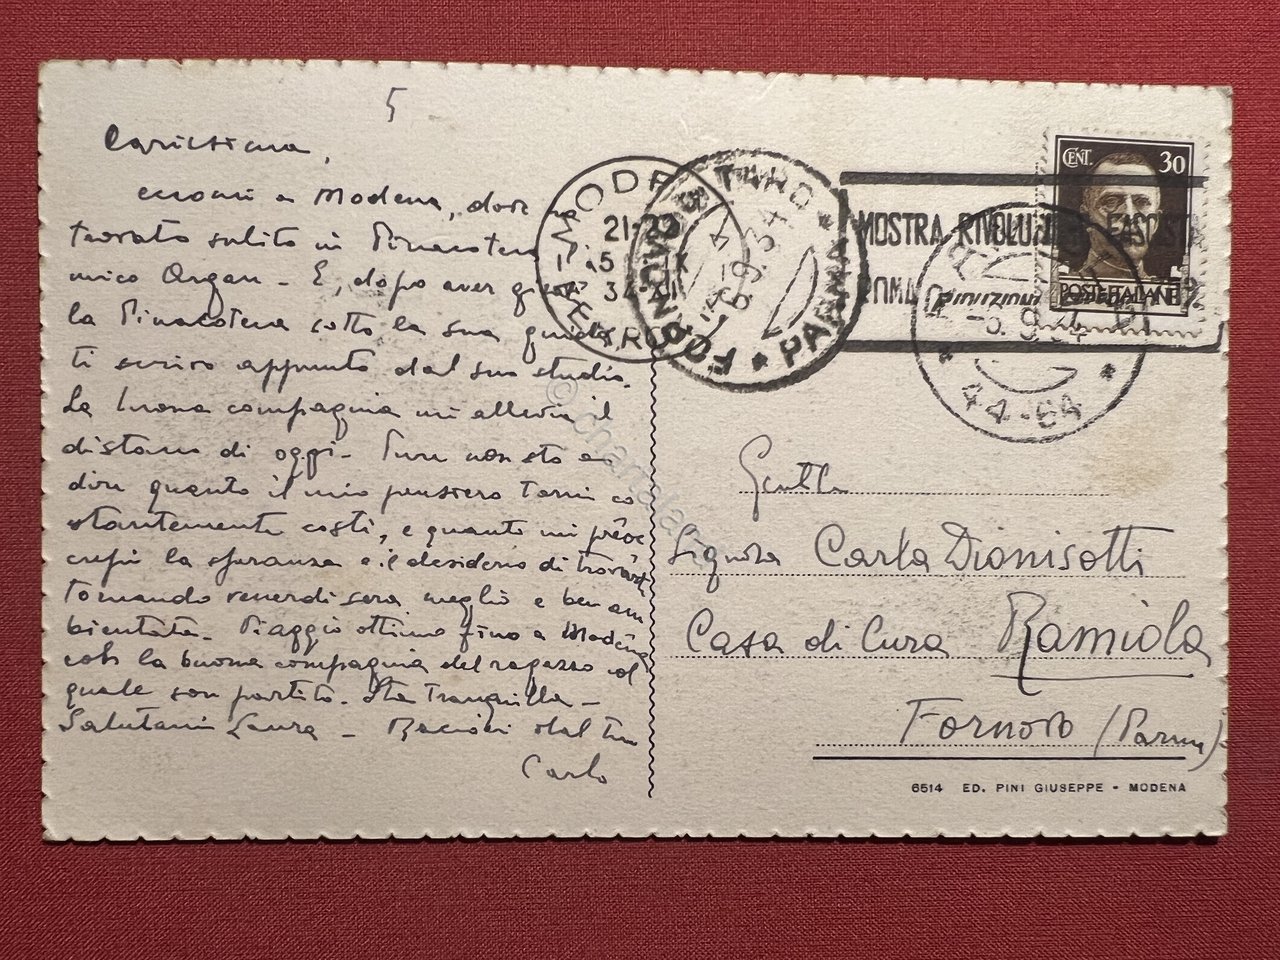 5
Carissima,
eccomi a Modena, dove
trovato subito in Pinacoteca
mico Argan - E, dopo aver
la Pinacoteca sotto la sua guida
ti scrivo appunto dal suo studio.
La buona compagnia mi allevia il
distacco di oggi - Pure non sto a
dire quanto il mio pensiero torni co
stantemente costì, e quanto mi
la speranza e il desiderio di trovarti
tornando venerdì sera meglio e ben am
bientata. Viaggio ottimo fino a Modena
con la buona compagnia del ragazzo col
quale son partito. Sta tranquilla -
Salutami Laura - Bacioni dal tuo
Carlo
MODENA
21-22
5 IX
34
FERROVIA
FORNOVO DI TARO
PARMA
6.9.34
MOSTRA RIVOLUZIONE FASCISTA
ROMA
44-64
CENT. 30
POSTE ITALIANE
© chartaland
Gent.ma
Signora Carla Dionisotti
Casa di Cura Ramiola
Fornovo (Parma)
6514 ED. PINI GIUSEPPE - MODENA